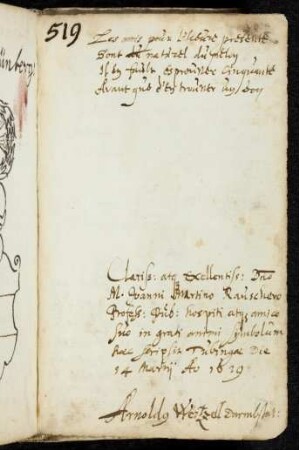 519
Les amis pour l'heure presente
Sont du naturel du melon
Il en fault esprouver cinquante
Avant que d'en trouver un bon
Clariss: atq Exellentiss: Dno
M. Joanni Martino Rauschero
Profess: Pub: hospiti atq amico
suo in grati animi symbolum
haec scripsit Tubingae Die
14 Martij Ao 1629
Arnoldg Weitzel Darmbstat: